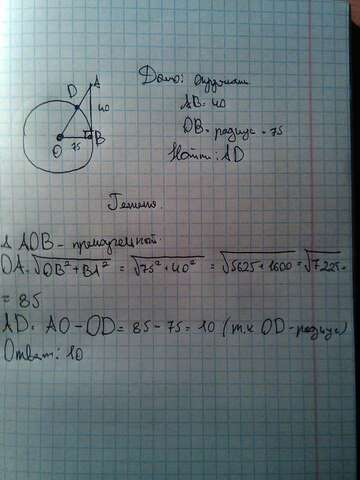 Дано: окружность
AB=40
OB-радиус=75
Найти: AD
A
D
40
O
75
B
Решение.
Δ AOB - прямоугольный
OA=√OB²+BA² = √75²+40² = √5625+1600 = √7225=
= 85
AD= AO-OD= 85-75=10 (т.к OD-радиус)
Ответ: 10